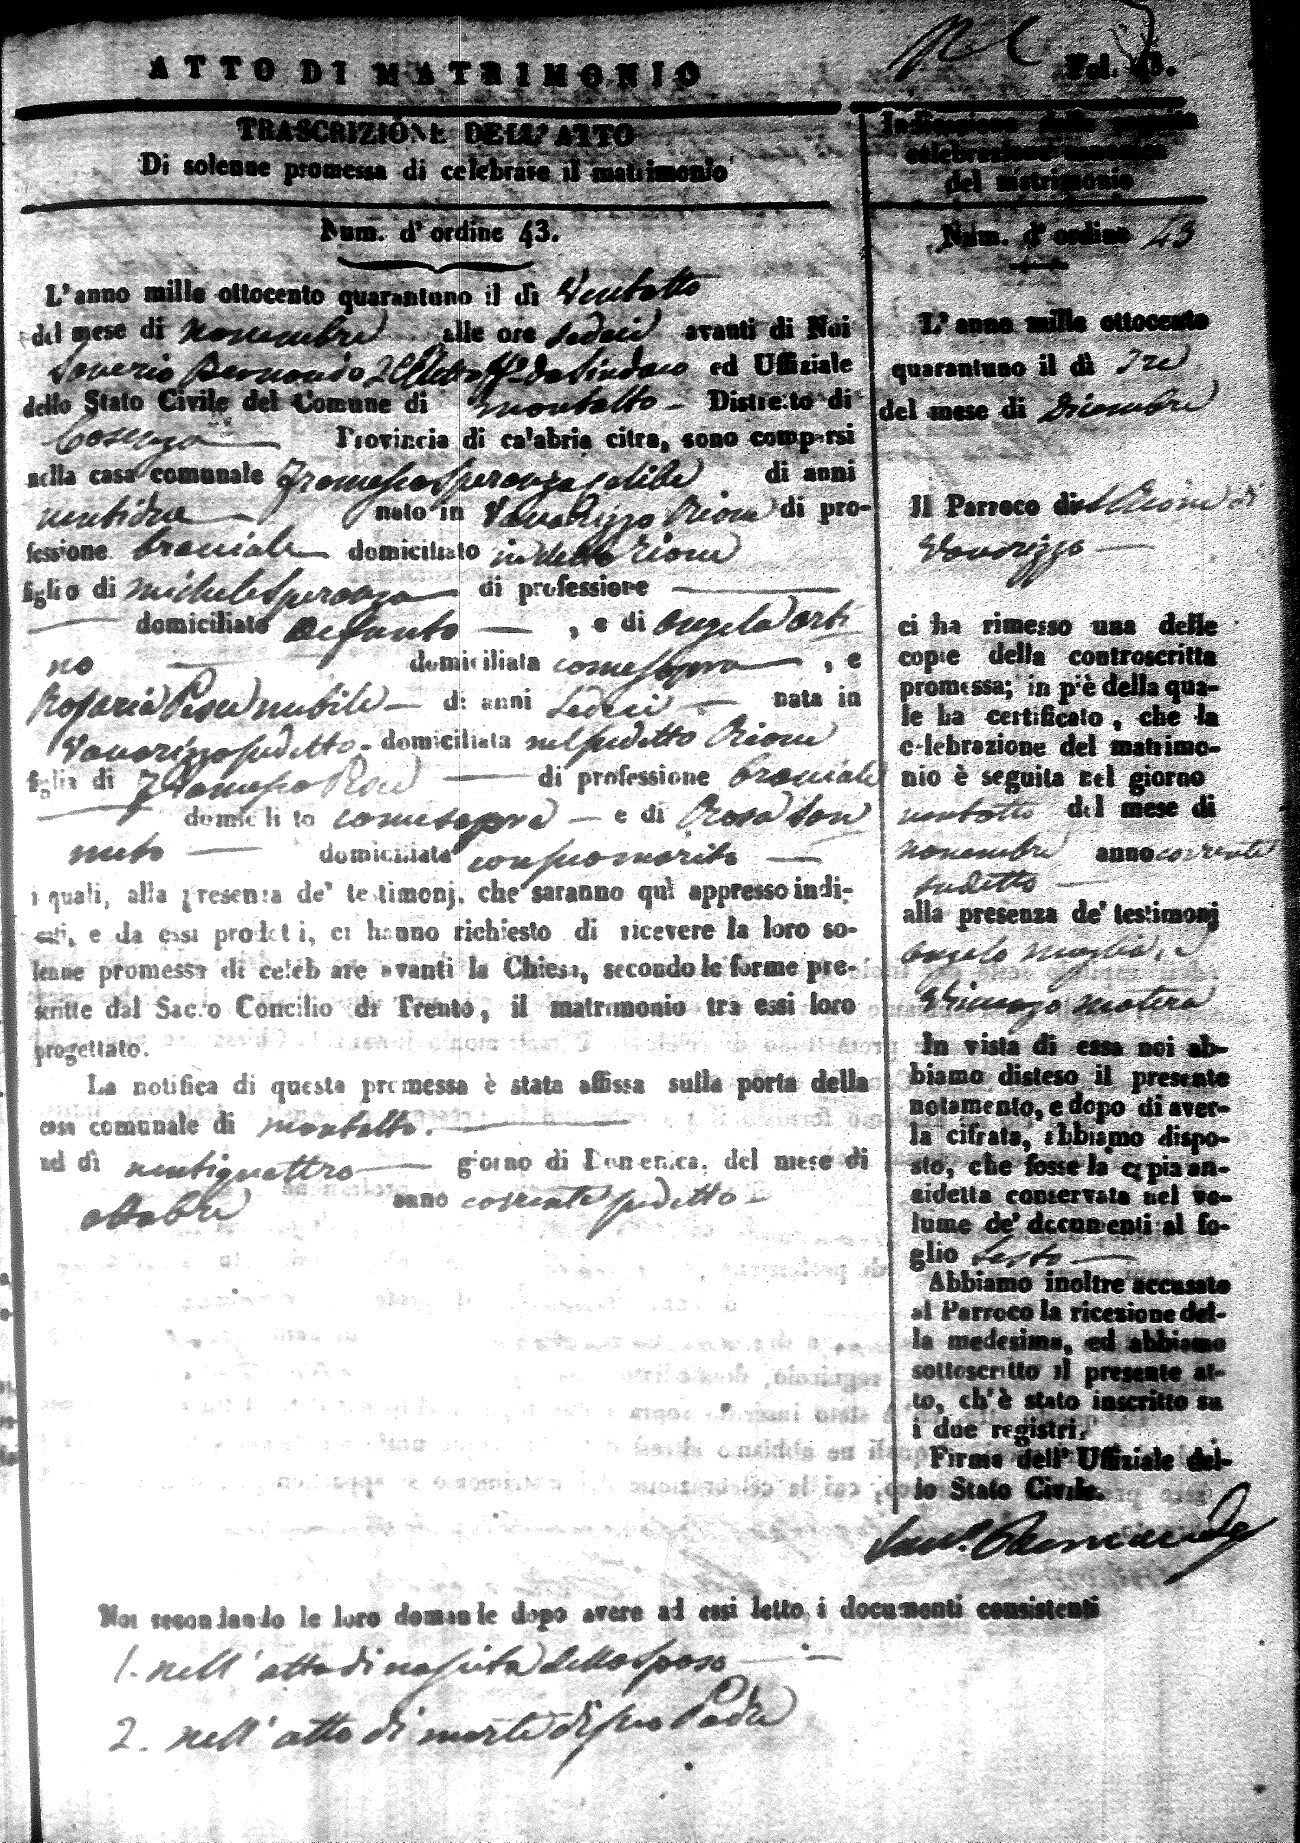 ATTO DI MATRIMONIO
TRASCRIZIONE DELL'ATTO
Di solenne promessa di celebrare il matrimonio
Num. d'ordine 43.
L'anno mille ottocento quarantuno il di Ventotto
del mese di novembre alle ore sedeci avanti di Noi
Saverio Bernaudo da Sindaco ed Uffiziale
dello Stato Civile del Comune di Montalto - Distretto di
Cosenza Provincia di calabria citra, sono comparsi
nella casa comunale Francesco Speranza celibe di anni
ventidue nato in Vavarizzo Rione di pro-
fessione braciale domiciliato in detto rione
figlio di Michele Speranza di professione
domiciliato defunto , e di Angela Orti
no domiciliata come sopra , e
Rosaria Pesce nubile di anni sedeci nata in
Vavarizzo sudetto - domiciliata nel sudetto Rione
figlia di Francesco di professione braciale
domiciliato come sopra - e di Rosa San
nuto domiciliata con suo marito
i quali, alla presenza de' testimonj, che saranno quì appresso indi-
cati, e da essi prodotti, ci hanno richiesto di ricevere la loro so-
lenne promessa di celebrare avanti la Chiesa, secondo le forme pre-
scritte dal Sacro Concilio di Trento, il matrimonio tra essi loro
progettato.
La notifica di questa promessa è stata affissa sulla porta della
casa comunale di Montalto.
ad dì ventiquattro giorno di Domenica, del mese di
ottobre anno corrente sudetto -
Noi secondando le loro domande dopo avere ad essi letto i documenti consistenti
1. nell'atto di nascita dello sposo
2. nell'atto di morte di suo Padre
Fol.
Indicazione della seguita
celebrazione canonica
del matrimonio
Num. d'ordine 43
L'anno mille ottocento
quarantuno il dì Tre
del mese di Dicembre
Il Parroco di Rione di
Vavarizzo
ci ha rimesso una delle
copie della controscritta
promessa; in piè della qua-
le ha certificato, che la
celebrazione del matrimo-
nio è seguita nel giorno
ventotto del mese di
novembre anno corrente
sudetto
alla presenza de' testimonj
Angelo e
Vincenzo Matera
In vista di essa noi ab-
biamo disteso il presente
notamento, e dopo di aver-
la cifrata, abbiamo dispo-
sto, che fosse la copia an-
zidetta conservata nel vo-
lume de' documenti al fo-
glio sesto
Abbiamo inoltre accusato
al Parroco la ricezione del-
la medesima, ed abbiamo
sottoscritto il presente at-
to, ch'è stato inscritto su
i due registri.
Firma dell'Uffiziale del-
lo Stato Civile.
Sav.o Bernaudo